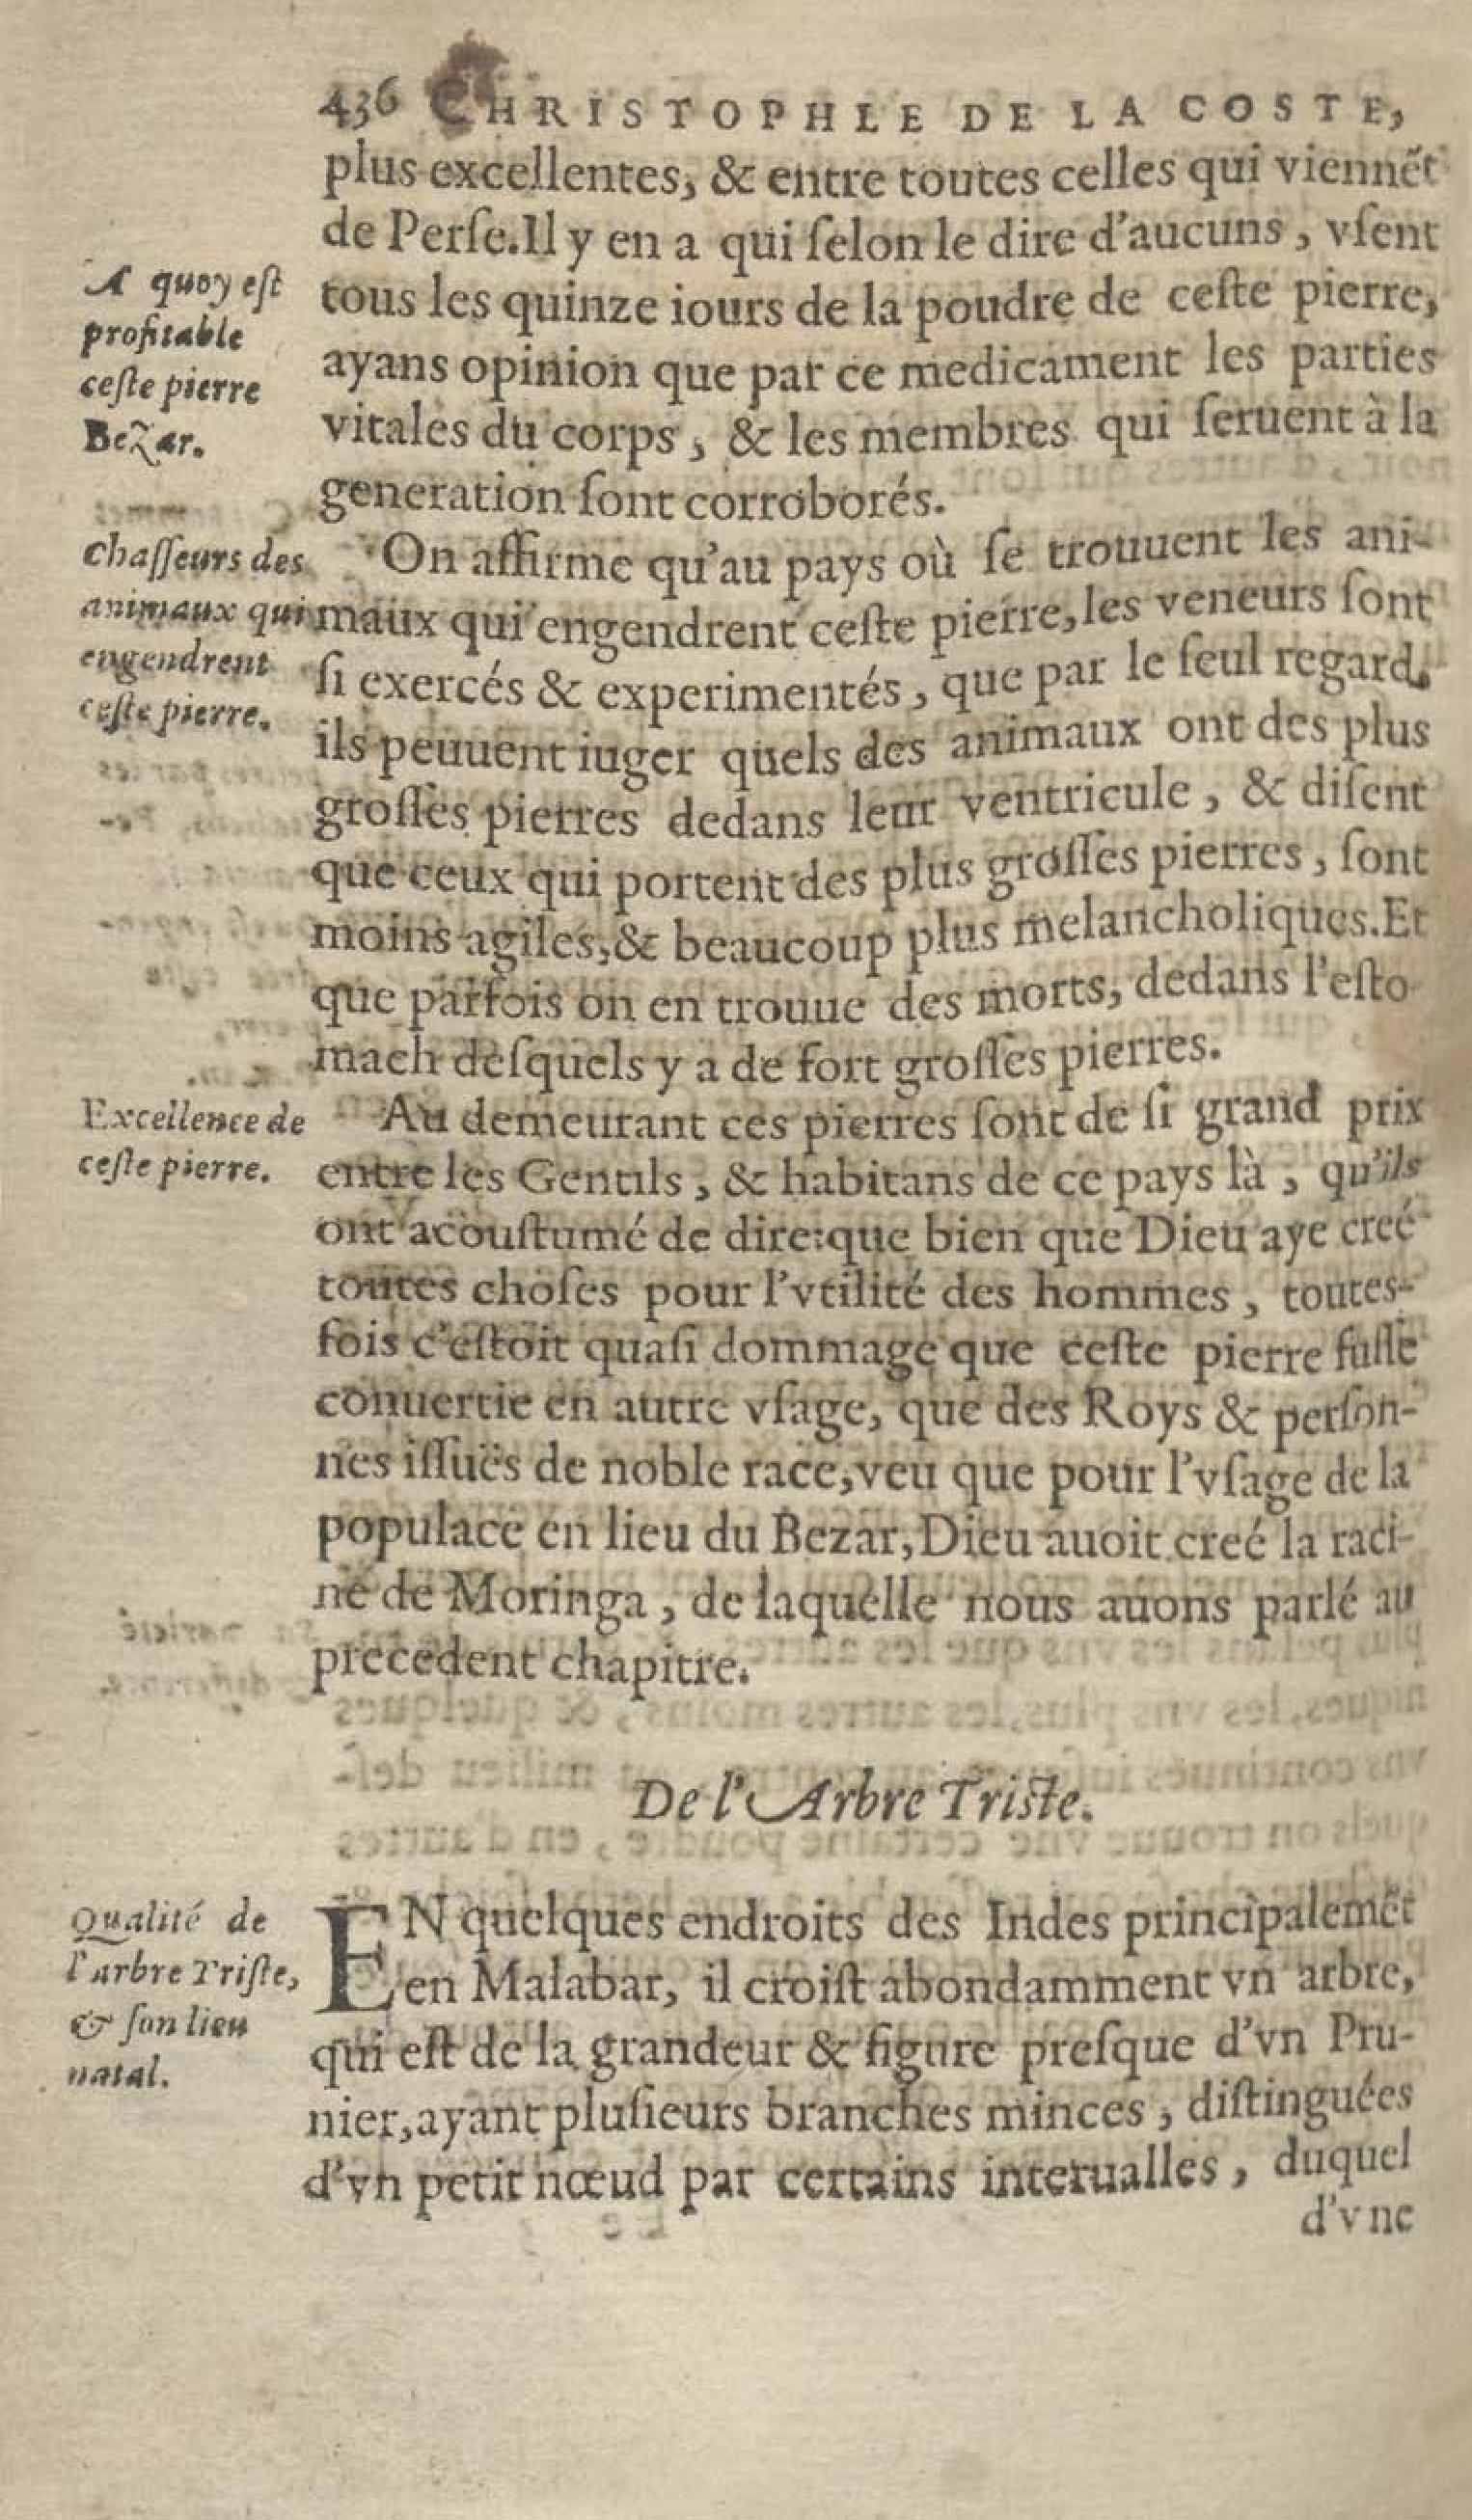 436 CHRISTOPHLE DE LA COSTE,
plus excellentes, & entre toutes celles qui viennẽt
de Perſe.Il y en a qui ſelon le dire d'aucuns, vſent
A quoy eſt
profitable
ceſte pierre
Bezar.
tous les quinze iours de la poudre de ceſte pierre,
ayans opinion que par ce medicament les parties
vitales du corps, & les membres qui ſeruent à la
generation ſont corroborés.
Chaſſeurs des
animaux qui
engendrent
ceſte pierre.
On affirme qu'au pays où ſe trouuent les ani-
maux qui engendrent ceſte pierre, les veneurs ſont
ſi exercés & experimentés, que par le ſeul regard,
ils peuuent iuger quels des animaux ont des plus
groſſes pierres dedans leur ventricule, & diſent
que ceux qui portent des plus groſſes pierres, ſont
moins agiles, & beaucoup plus melancholiques.Et
que parfois on en trouue des morts, dedans l'eſto-
mach deſquels y a de fort groſſes pierres.
Excellence de
ceſte pierre.
Au demeurant ces pierres ſont de ſi grand prix
entre les Gentils, & habitans de ce pays là, qu'ils
ont acouſtumé de dire:que bien que Dieu aye creé
toutes choſes pour l'vtilité des hommes, toutes-
fois c'eſtoit quaſi dommage que ceſte pierre fuſſe
conuertie en autre vſage, que des Roys & perſon-
nes iſſuës de noble race, veu que pour l'vſage de la
populace en lieu du Bezar, Dieu auoit creé la raci-
ne de Moringa, de laquelle nous auons parlé au
precedent chapitre.
De l'Arbre Triſte.
Qualité de
l'arbre Triſte,
& ſon lieu
natal.
EN quelques endroits des Indes principalemẽt
en Malabar, il croiſt abondamment vn arbre,
qui eſt de la grandeur & figure preſque d'vn Pru-
nier, ayant pluſieurs branches minces, diſtinguées
d'vn petit nœud par certains interualles, duquel
d'vne